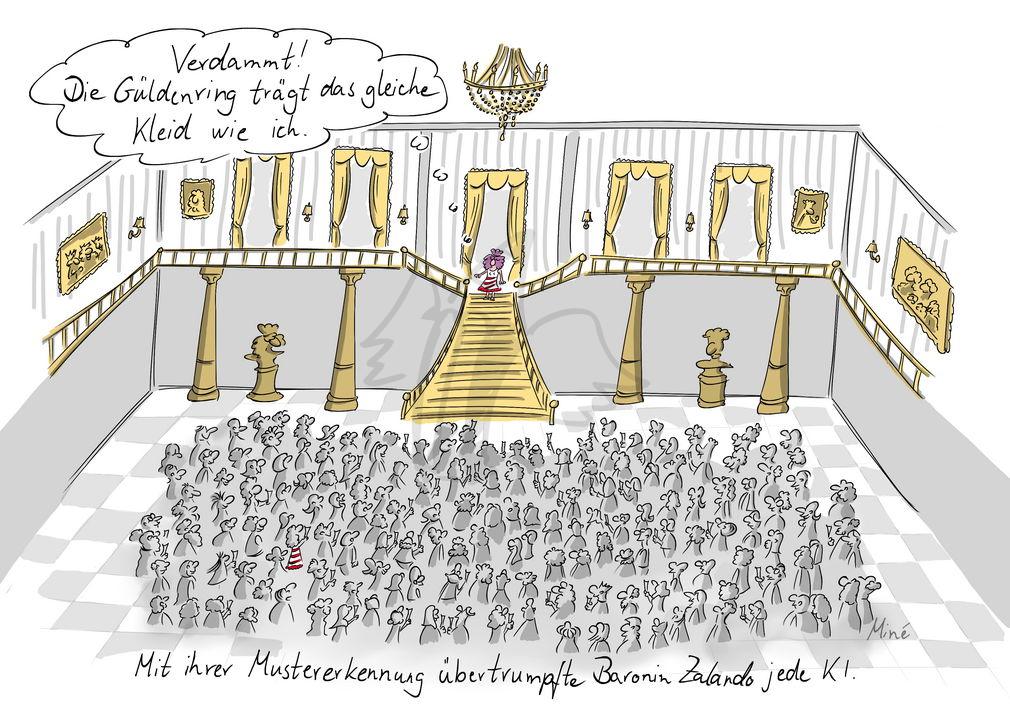 Verdammt!
Die Güldenring trägt das gleiche
Kleid wie ich.
Miné
Mit ihrer Mustererkennung übertrumpfte Baronin Zalando jede KI.